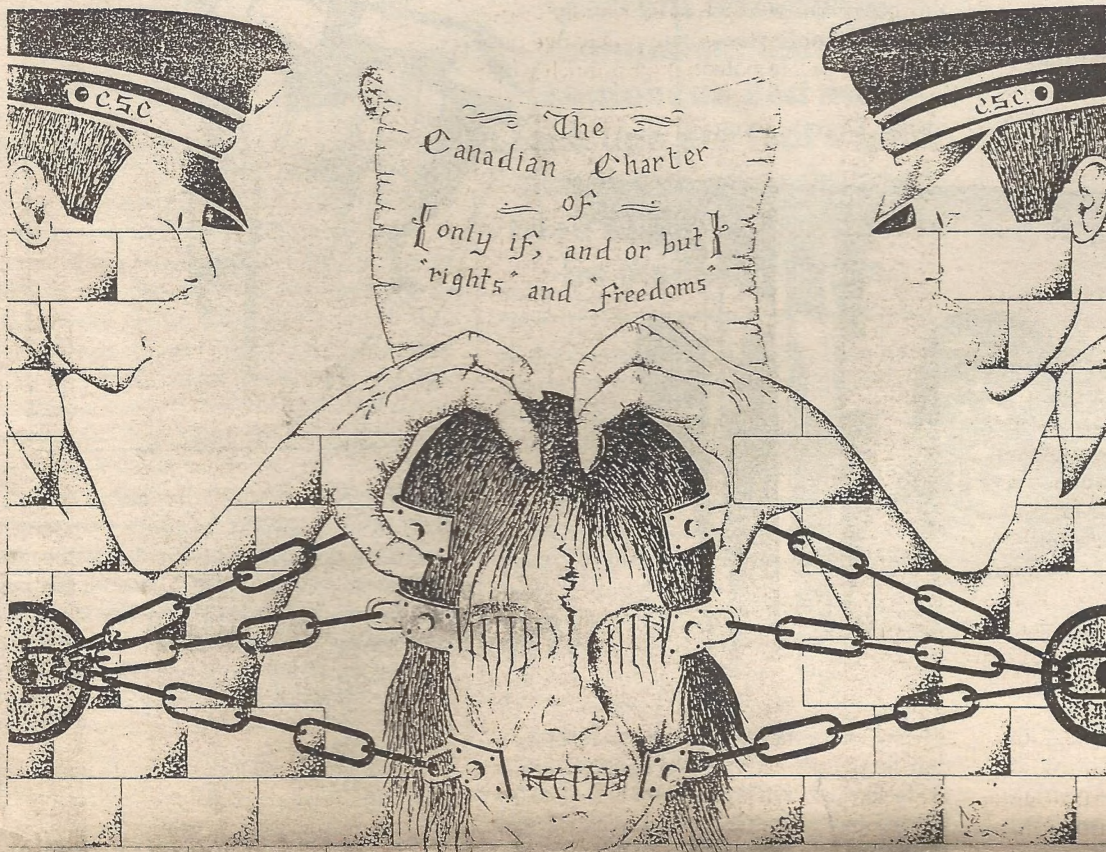 C.S.C.
C.S.C.
The
Canadian Charter
of
{only if, and or but}
"rights" and "freedoms"